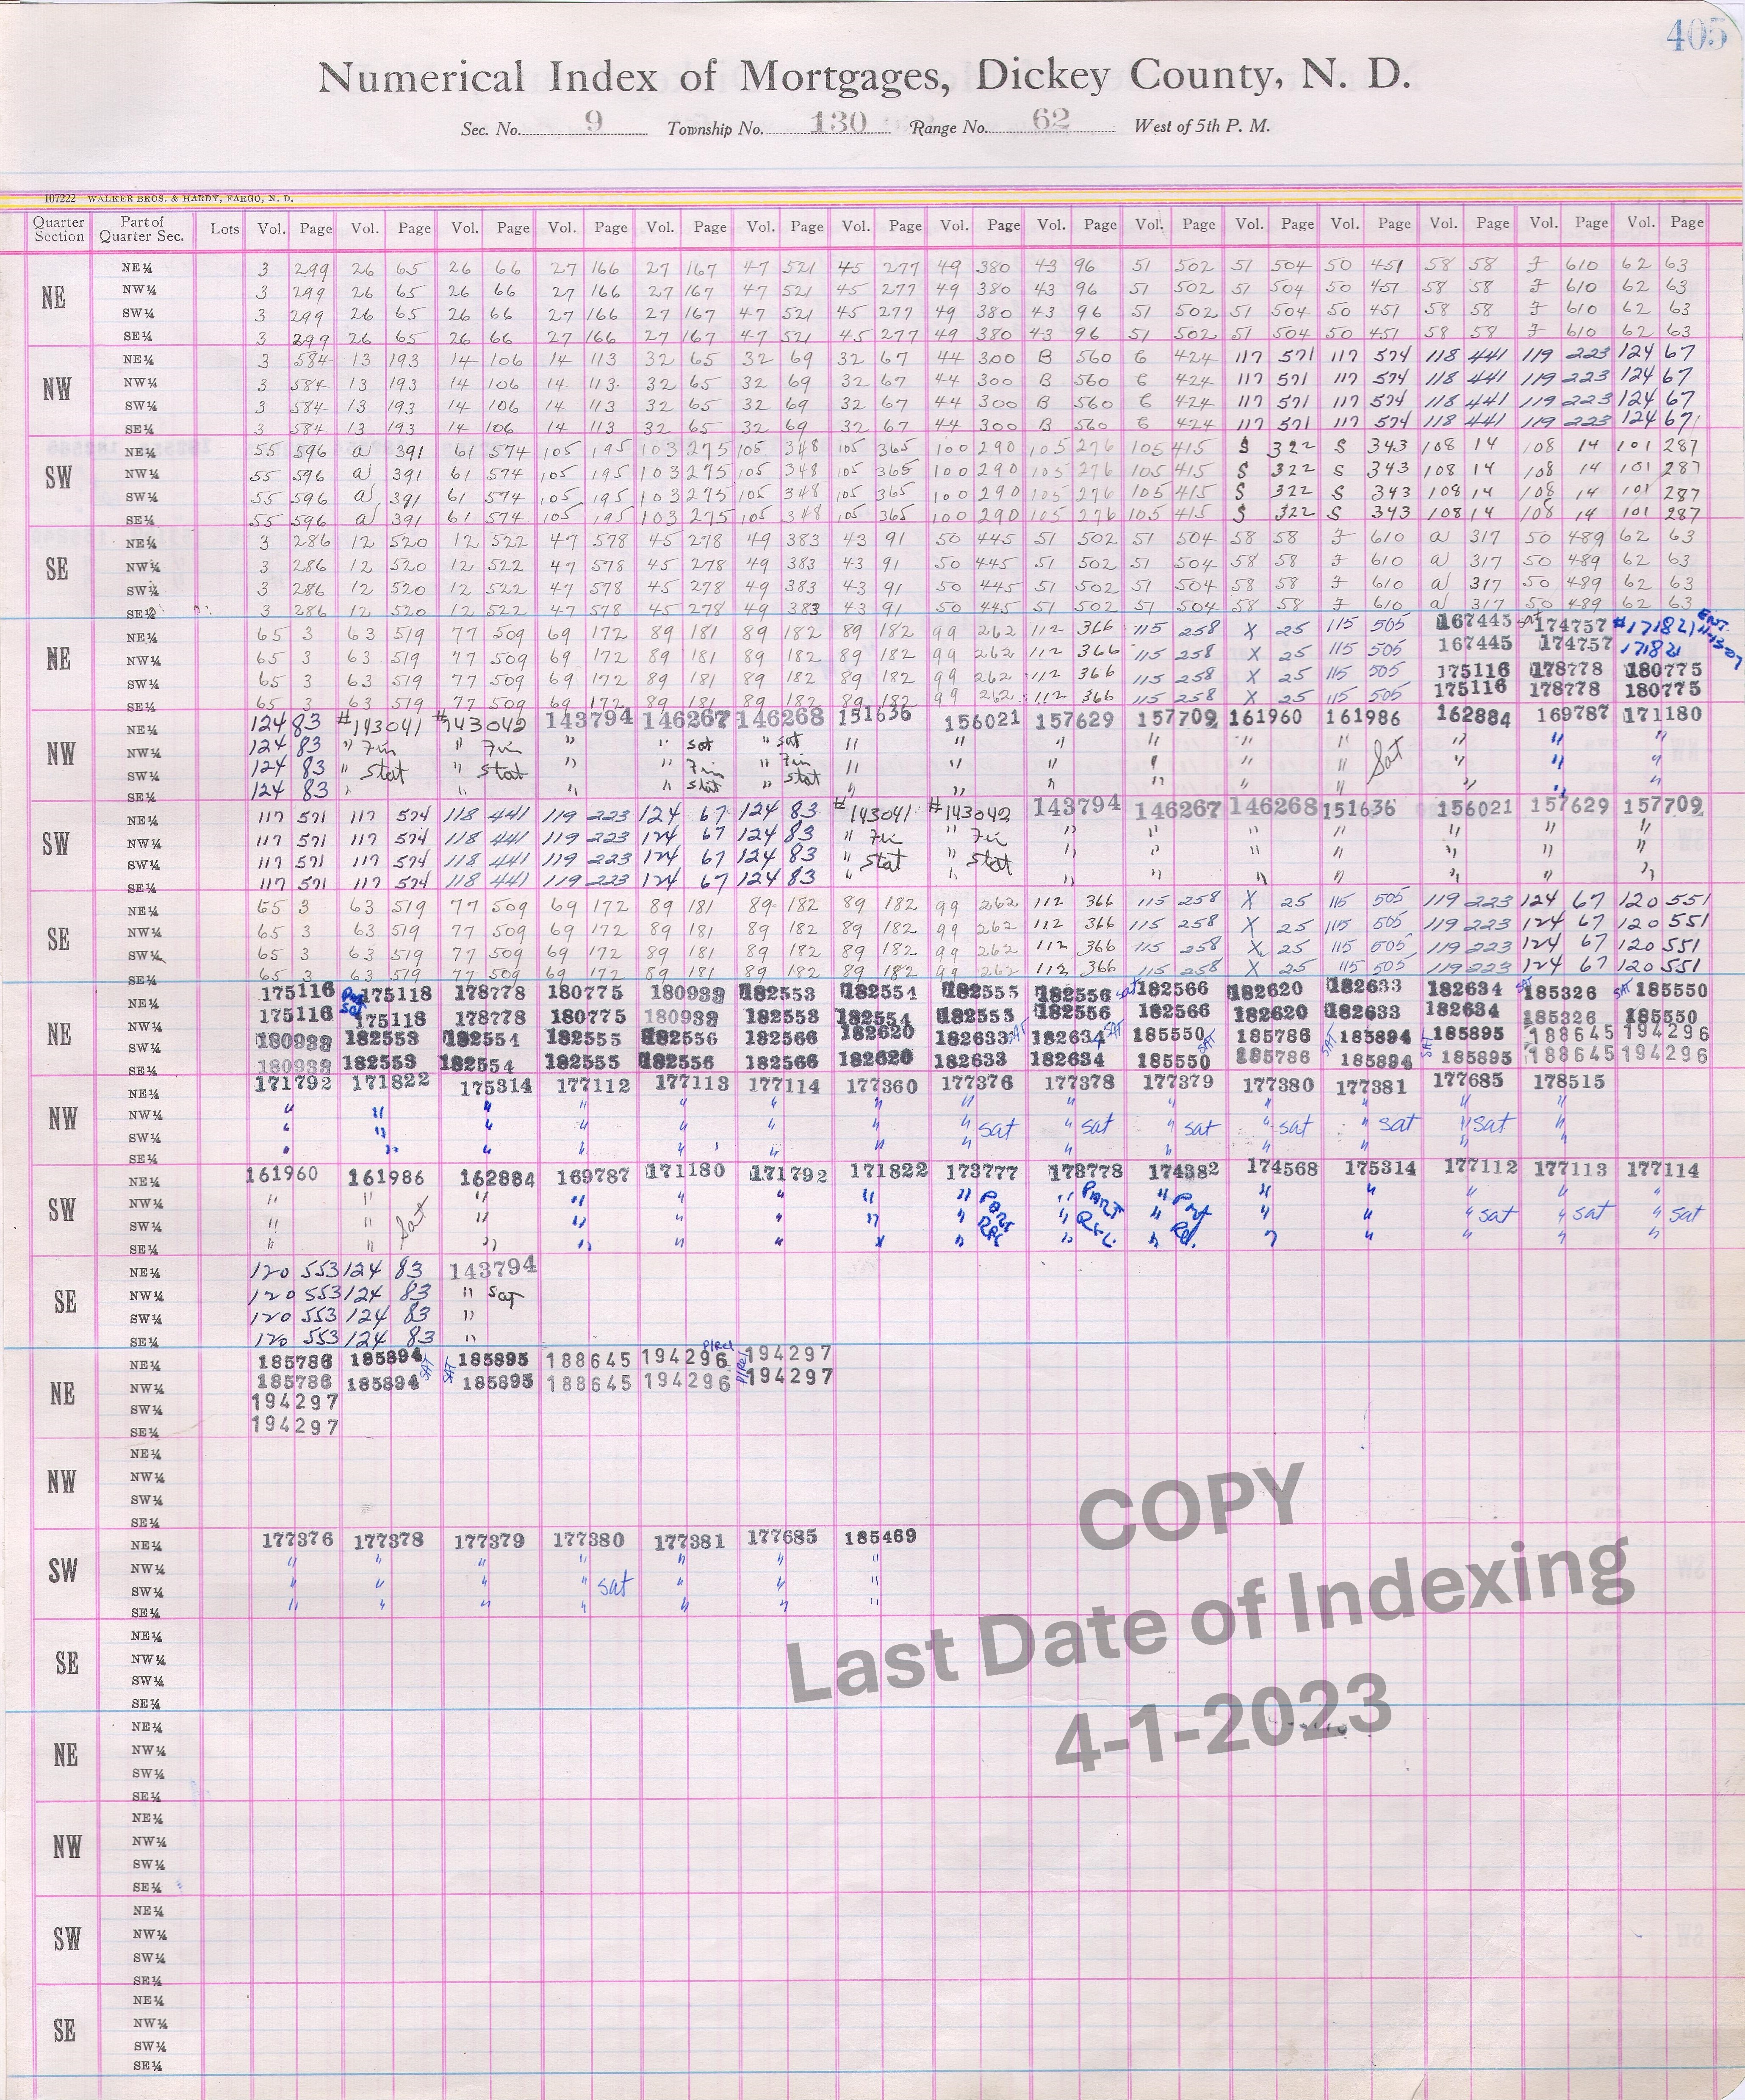 405
Numerical Index of Mortgages, Dickey County, N. D.
Sec. No. 9 Township No. 130 Range No. 62 West of 5th P. M.
107222 WALKER BROS. & HARDY, FARGO, N. D.
Quarter Section Part of Quarter Sec. Lots Vol. Page Vol. Page Vol. Page Vol. Page Vol. Page Vol. Page Vol. Page Vol. Page Vol. Page Vol. Page Vol. Page Vol. Page Vol. Page Vol. Page Vol. Page
NE
NE¼ 3 299 26 65 26 66 27 166 27 167 47 521 45 277 49 380 43 96 51 502 51 504 50 451 58 58 J 610 62 63
NW¼ 3 299 26 65 26 66 27 166 27 167 47 521 45 277 49 380 43 96 51 502 51 504 50 451 58 58 J 610 62 63
SW¼ 3 299 26 65 26 66 27 166 27 167 47 521 45 277 49 380 43 96 51 502 51 504 50 451 58 58 J 610 62 63
SE¼ 3 299 26 65 26 66 27 166 27 167 47 521 45 277 49 380 43 96 51 502 51 504 50 451 58 58 J 610 62 63
NW
NE¼ 3 584 13 193 14 106 14 113 32 65 32 69 32 67 44 300 B 560 424 117 571 117 574 118 441 119 223 124 67
NW¼ 3 584 13 193 14 106 14 113 32 65 32 69 32 67 44 300 B 560 424 117 571 117 574 118 441 119 223 124 67
SW¼ 3 584 13 193 14 106 14 113 32 65 32 69 32 67 44 300 B 560 424 117 571 117 574 118 441 119 223 124 67
SE¼ 3 584 13 193 14 106 14 113 32 65 32 69 32 67 44 300 B 560 424 117 571 117 574 118 441 119 223 124 67
SW
NE¼ 55 596 a 391 61 574 105 195 103 275 105 348 105 365 100 290 105 276 105 415 S 322 S 343 108 14 108 14 101 287
NW¼ 55 596 a 391 61 574 105 195 103 275 105 348 105 365 100 290 105 276 105 415 S 322 S 343 108 14 108 14 101 287
SW¼ 55 596 a 391 61 574 105 195 103 275 105 348 105 365 100 290 105 276 105 415 S 322 S 343 108 14 108 14 101 287
SE¼ 55 596 a 391 61 574 105 195 103 275 105 348 105 365 100 290 105 276 105 415 S 322 S 343 108 14 108 14 101 287
SE
NE¼ 3 286 12 520 12 522 47 578 45 278 49 383 43 91 50 445 51 502 51 504 58 58 J 610 a 317 50 489 62 63
NW¼ 3 286 12 520 12 522 47 578 45 278 49 383 43 91 50 445 51 502 51 504 58 58 J 610 a 317 50 489 62 63
SW¼ 3 286 12 520 12 522 47 578 45 278 49 383 43 91 50 445 51 502 51 504 58 58 J 610 a 317 50 489 62 63
SE¼ 3 286 12 520 12 522 47 578 45 278 49 383 43 91 50 445 51 502 51 504 58 58 J 610 a 317 50 489 62 63
NE
NE¼ 65 3 63 519 77 509 69 172 89 181 89 182 89 182 99 262 112 366 115 258 X 25 115 505 167445 174757 #171821
NW¼ 65 3 63 519 77 509 69 172 89 181 89 182 89 182 99 262 112 366 115 258 X 25 115 505 167445 174757 171821
SW¼ 65 3 63 519 77 509 69 172 89 181 89 182 89 182 99 262 112 366 115 258 X 25 115 505 175116 178778 180775
SE¼ 65 3 63 519 77 509 69 172 89 181 89 182 89 182 99 262 112 366 115 258 X 25 115 505 175116 178778 180775
NW
NE¼ 124 83 #143041 #143042 143794 146267 146268 151636 156021 157629 157709 161960 161986 162884 169787 171180
NW¼ 124 83 " Fin " Fin " " sat " sat " " " " " " " " "
SW¼ 124 83 " Stat " Stat " " Fin " Fin " " " " " " Sat " " "
SE¼ 124 83 " " " " Stat " Stat " " " " " " " " "
SW
NE¼ 117 571 117 574 118 441 119 223 124 67 124 83 #143041 #143042 143794 146267 146268 151636 156021 157629 157709
NW¼ 117 571 117 574 118 441 119 223 124 67 124 83 " Fin " Fin " " " " " " "
SW¼ 117 571 117 574 118 441 119 223 124 67 124 83 " Stat " Stat " " " " " " "
SE¼ 117 571 117 574 118 441 119 223 124 67 124 83 " " " " " " " " "
SE
NE¼ 65 3 63 519 77 509 69 172 89 181 89 182 89 182 99 262 112 366 115 258 X 25 115 505 119 223 124 67 120 551
NW¼ 65 3 63 519 77 509 69 172 89 181 89 182 89 182 99 262 112 366 115 258 X 25 115 505 119 223 124 67 120 551
SW¼ 65 3 63 519 77 509 69 172 89 181 89 182 89 182 99 262 112 366 115 258 X 25 115 505 119 223 124 67 120 551
SE¼ 65 3 63 519 77 509 69 172 89 181 89 182 89 182 99 262 112 366 115 258 X 25 115 505 119 223 124 67 120 551
NE
NE¼ 175116 175118 178778 180775 180933 182553 182554 182555 182556 sat 182566 182620 182633 182634 SAT 185326 SAT 185550
NW¼ 175116 175118 178778 180775 180933 182553 182554 182555 182556 182566 182620 182633 182634 185326 185550
SW¼ 180933 182553 182554 182555 182556 182566 182620 182633 SAT 182634 SAT 185550 SAT 185786 SAT 185894 SAT 185895 188645 194296
SE¼ 180933 182553 182554 182555 182556 182566 182620 182633 182634 185550 185786 185894 185895 188645 194296
NW
NE¼ 171792 171822 175314 177112 177113 177114 177360 177376 177378 177379 177380 177381 177685 178515
NW¼ " " " " " " " " " " " " " "
SW¼ " " " " " " " " sat " sat " sat " sat " sat " sat "
SE¼ " " " " " " " " " " " " " "
SW
NE¼ 161960 161986 162884 169787 171180 171792 171822 173777 173778 174382 174568 175314 177112 177113 177114
NW¼ " " " " " " " " PART " PART " Part " " " " "
SW¼ " " Sat " " " " " " Rel " Rel. " Rel. " " " sat " sat " sat
SE¼ " " " " " " " " " " " " " " "
SE
NE¼ 120 553 124 83 143794
NW¼ 120 553 124 83 " sat
SW¼ 120 553 124 83 "
SE¼ 120 553 124 83 "
NE
NE¼ 185786 185894 SAT SAT 185895 188645 194296 P/Rel P/Rel 194297
NW¼ 185786 185894 185895 188645 194296 194297
SW¼ 194297
SE¼ 194297
NW
NE¼
NW¼
SW¼
SE¼
SW
NE¼ 177376 177378 177379 177380 177381 177685 185469
NW¼ " " " " " " "
SW¼ " " " " sat " " "
SE¼ " " " " " " "
SE
NE¼
NW¼
SW¼
SE¼
NE
NE¼
NW¼
SW¼
SE¼
NW
NE¼
NW¼
SW¼
SE¼
SW
NE¼
NW¼
SW¼
SE¼
SE
NE¼
NW¼
SW¼
SE¼
COPY
Last Date of Indexing
4-1-2023